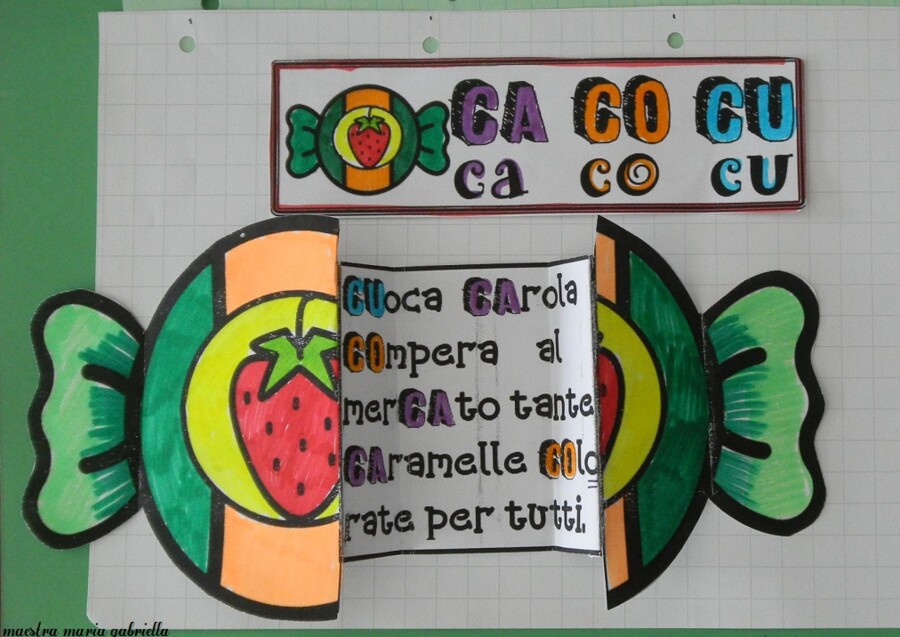 CA CO CU
ca co cu
CUoca CArola
COmpera al
merCAto tante
CAramelle COlo
rate per tutti.
maestra maria gabriella